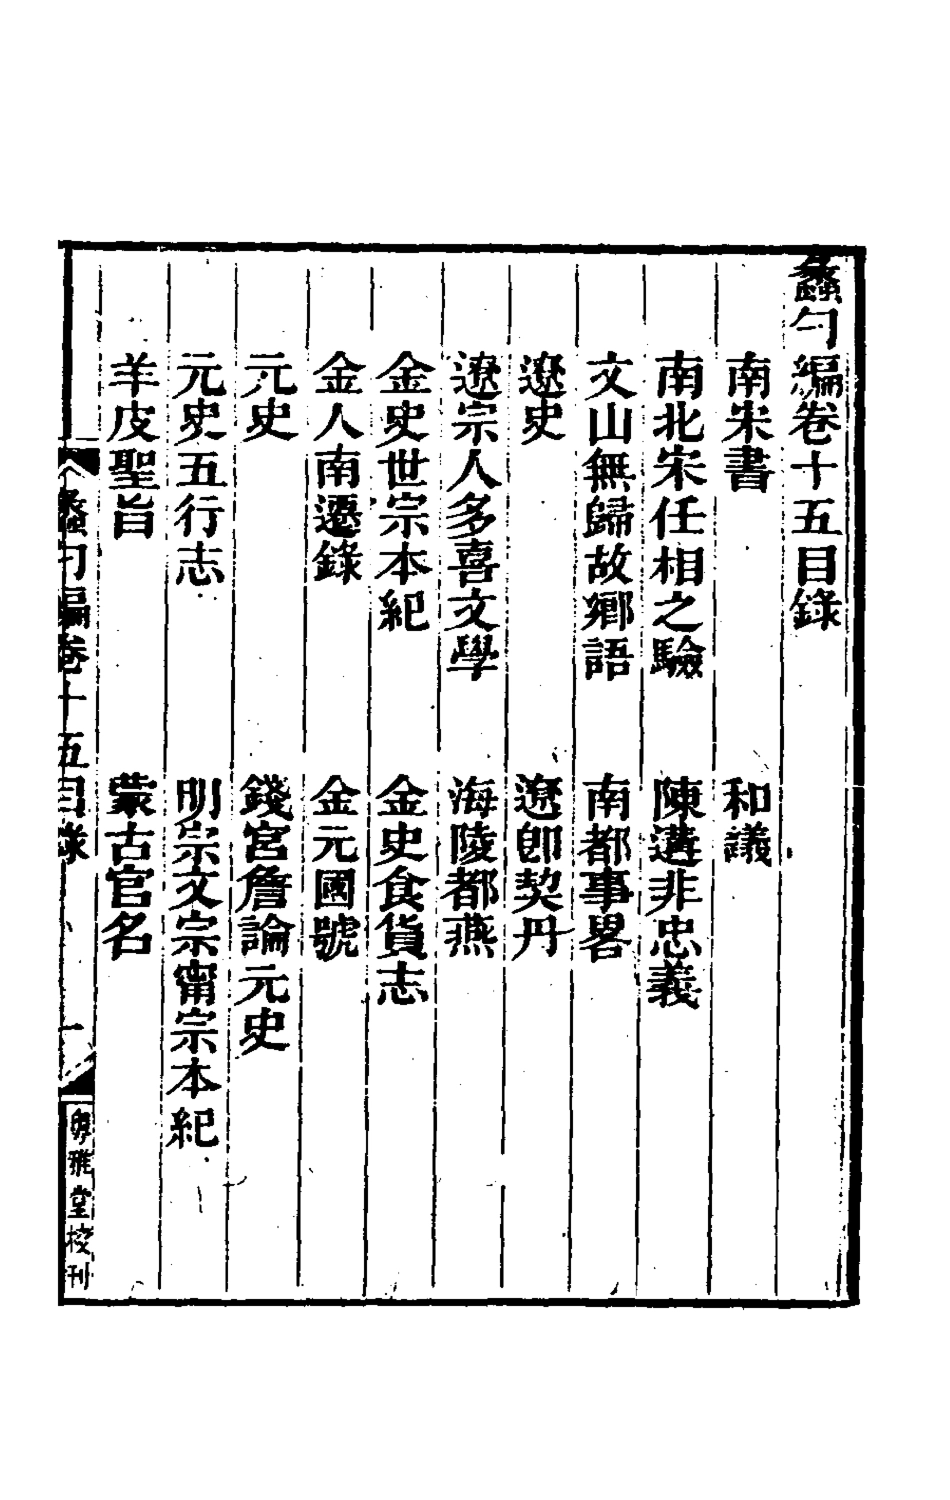 蠡勺編卷十五目錄
南宋書　和議
南北宋任相之驗　陳遘非忠義
文山無歸故鄉語　南都事畧
遼史　遼卽契丹
遼宗人多喜文學　海陵都燕
金史世宗本紀　金史食貨志
金人南遷錄　金元國號
元史　錢宮詹論元史
元史五行志　明宗文宗甯宗本紀
羊皮聖旨　蒙古官名
蠡勺編卷十五目錄　一　粵雅堂校刊